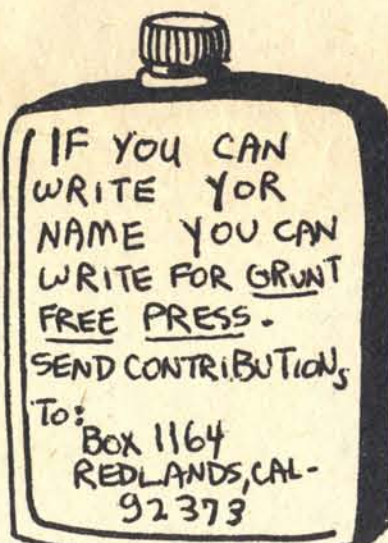 IF YOU CAN
WRITE YOR
NAME YOU CAN
WRITE FOR GRUNT
FREE PRESS.
SEND CONTRIBUTIONS
TO:
BOX 1164
REDLANDS, CAL-
92373